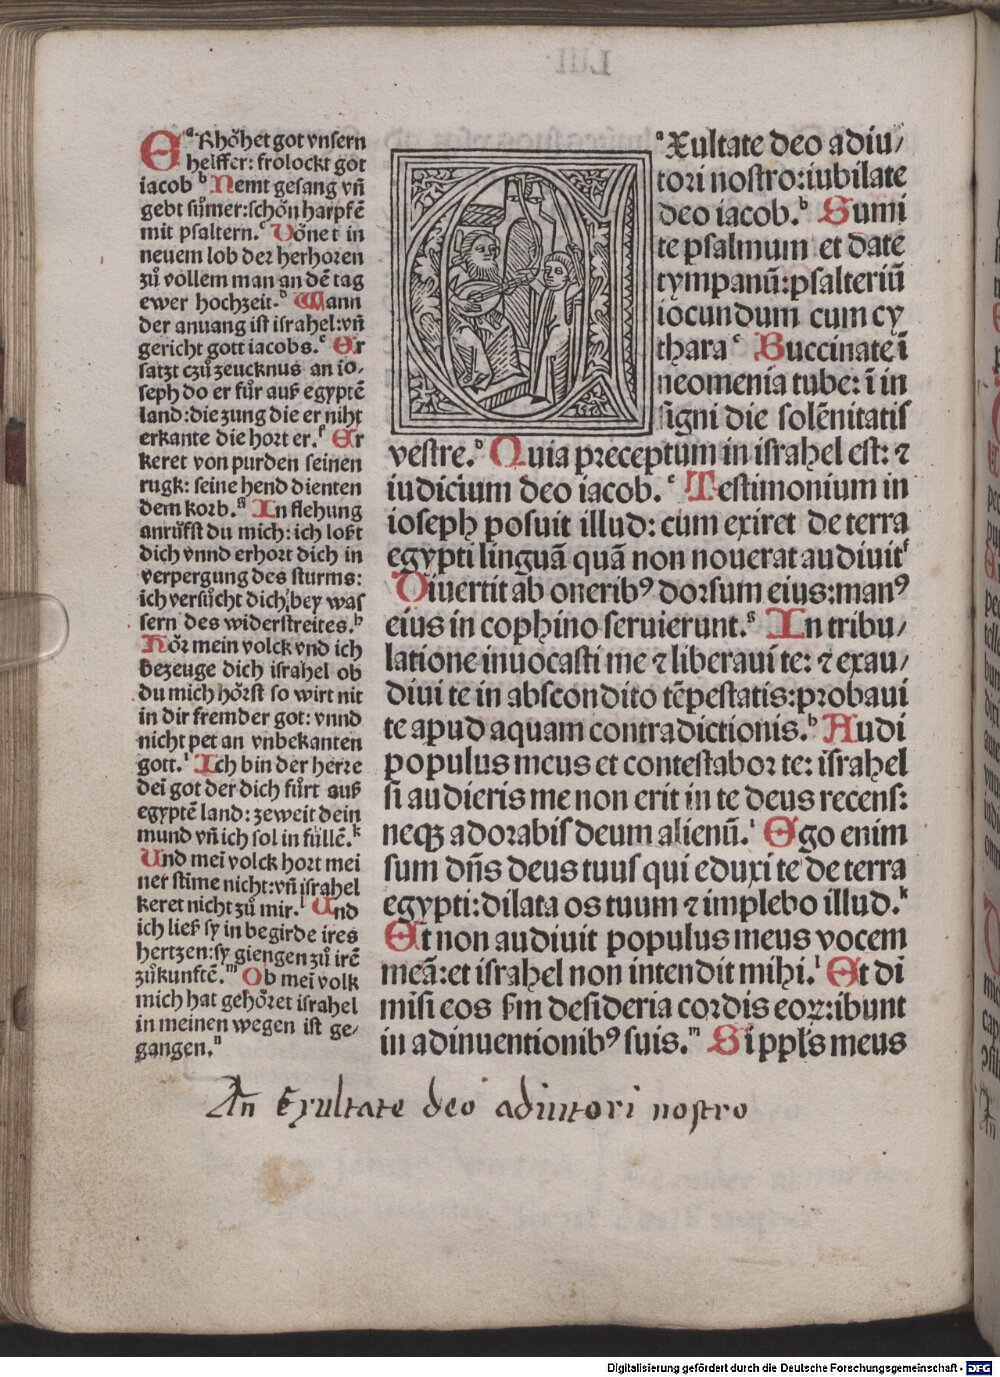 Eᵃ Rhöhet got vnsern
helffer: frolockt got
iacob ᵇ Nemt gesang vn̄
gebt sům̄er:schön harpfē
mit psaltern.ᶜ Dönet in
neuem lob der herhoren
zů vollem man an dē tag
ewer hochzeit.ᵈ Wann
der anuang ist israhel:vn̄
gericht gott iacobs.ᵉ Er
satzt czů zeucknus an io⸗
seph do er für auß egyptē
land:die zung die er niht
erkante die hort er.ᶠ Er
keret von purden seinen
rugk: seine hend dienten
dem korb.ᵍ In flehung
anrüfst du mich: ich loßt
dich vnnd erhort dich in
verpergung des sturms:
ich versücht dich bey was
sern des widerstreites.ʰ
Hör mein volck vnd ich
bezeuge dich israhel ob
du mich hörst so wirt nit
in dir fremder got: vnnd
nicht pet an vnbekanten
gott.ⁱ Ich bin der herre
dei got der dich fürt auß
egyptē land: zeweit dein
mund vn̄ ich sol in füllē.ᵏ
Und mei volck hort mei
ner stīme nicht:vn̄ israhel
keret nicht zů mir.ˡ Und
ich ließ sy in begirde ires
hertzen:sy giengen zů irē
zůkunftē.ᵐ Ob mei volk
mich hat gehöret israhel
in meinen wegen ist ge⸗
gangen.ⁿ
ᵃ Xultate deo adiu⸗
tori nostro:iubilate
deo iacob.ᵇ Sumi
te psalmum et date
tympanū:psalteriū
iocundum cum cy
thara ᶜ Buccinate ī
neomenia tube: ī in
signi die solēnitatis
vestre.ᵈ Quia preceptum in israhel est: ⁊
iudicium deo iacob.ᵉ Testimonium in
ioseph posuit illud: cum exiret de terra
egypti linguā quā non nouerat audiuitᶠ
Diuertit ab onerib⁹ dorsum eius:man⁹
eius in cophino seruierunt.ᵍ In tribu⸗
latione inuocasti me ⁊ liberaui te: ⁊ exau⸗
diui te in abscondito tēpestatis:probaui
te apud aquam contradictionis.ʰ Audi
populus meus et contestabor te: israhel
si audieris me non erit in te deus recens:
neqꝫ adorabis deum alienū.ⁱ Ego enim
sum dn̄s deus tuus qui eduxi te de terra
egypti:dilata os tuum ⁊ implebo illud.ᵏ
Et non audiuit populus meus vocem
meā:et israhel non intendit mihi.ˡ Et di
misi eos ßm desideria cordis eoꝝ:ibunt
in adinuentionib⁹ suis.ᵐ Si ppl̄s meus
An Exultate deo adiutori nostro
Digitalisierung gefördert durch die Deutsche Forschungsgemeinschaft - DFG